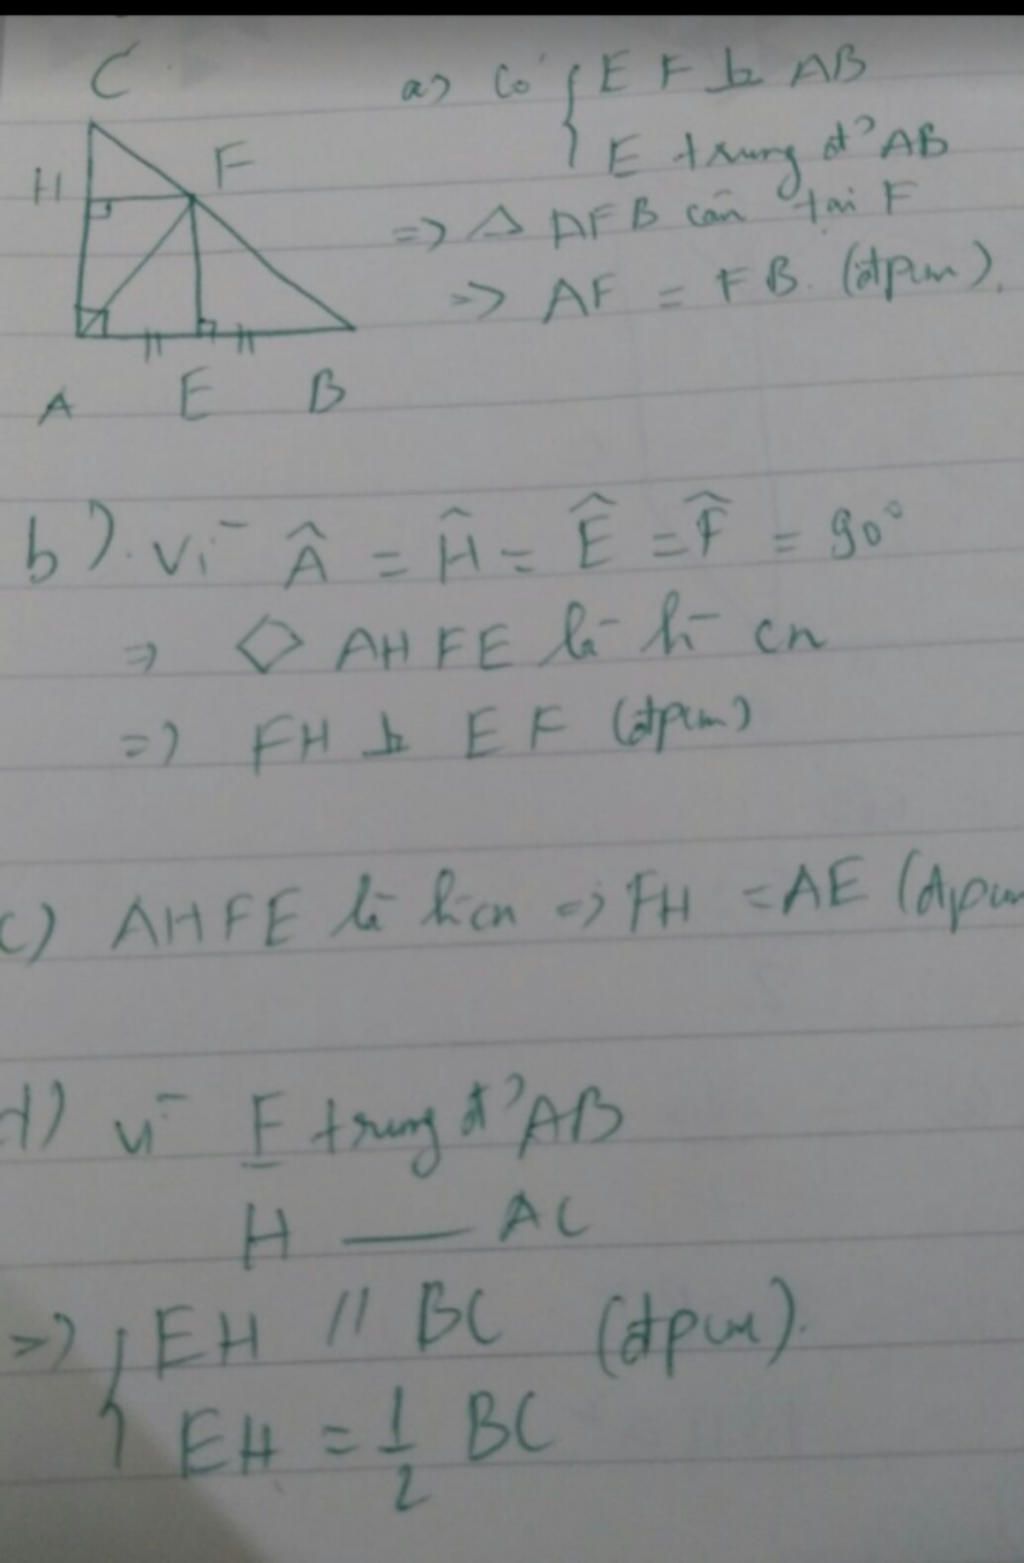 C
H
F
A
E
B
a) Có { E F ⊥ AB
E trung đ² AB
=> △ AFB cân tại F
=> AF = FB. (đpcm).
b). Vì Â = Ĥ = Ê = F̂ = 90°
=> ◇ AHFE là h cn
=> FH ⊥ EF (đpcm)
c) AHFE là hcn => FH = AE (đpcm
d) vì E trung đ² AB
H — AC
=> { EH // BC (đpcm).
EH = 1/2 BC